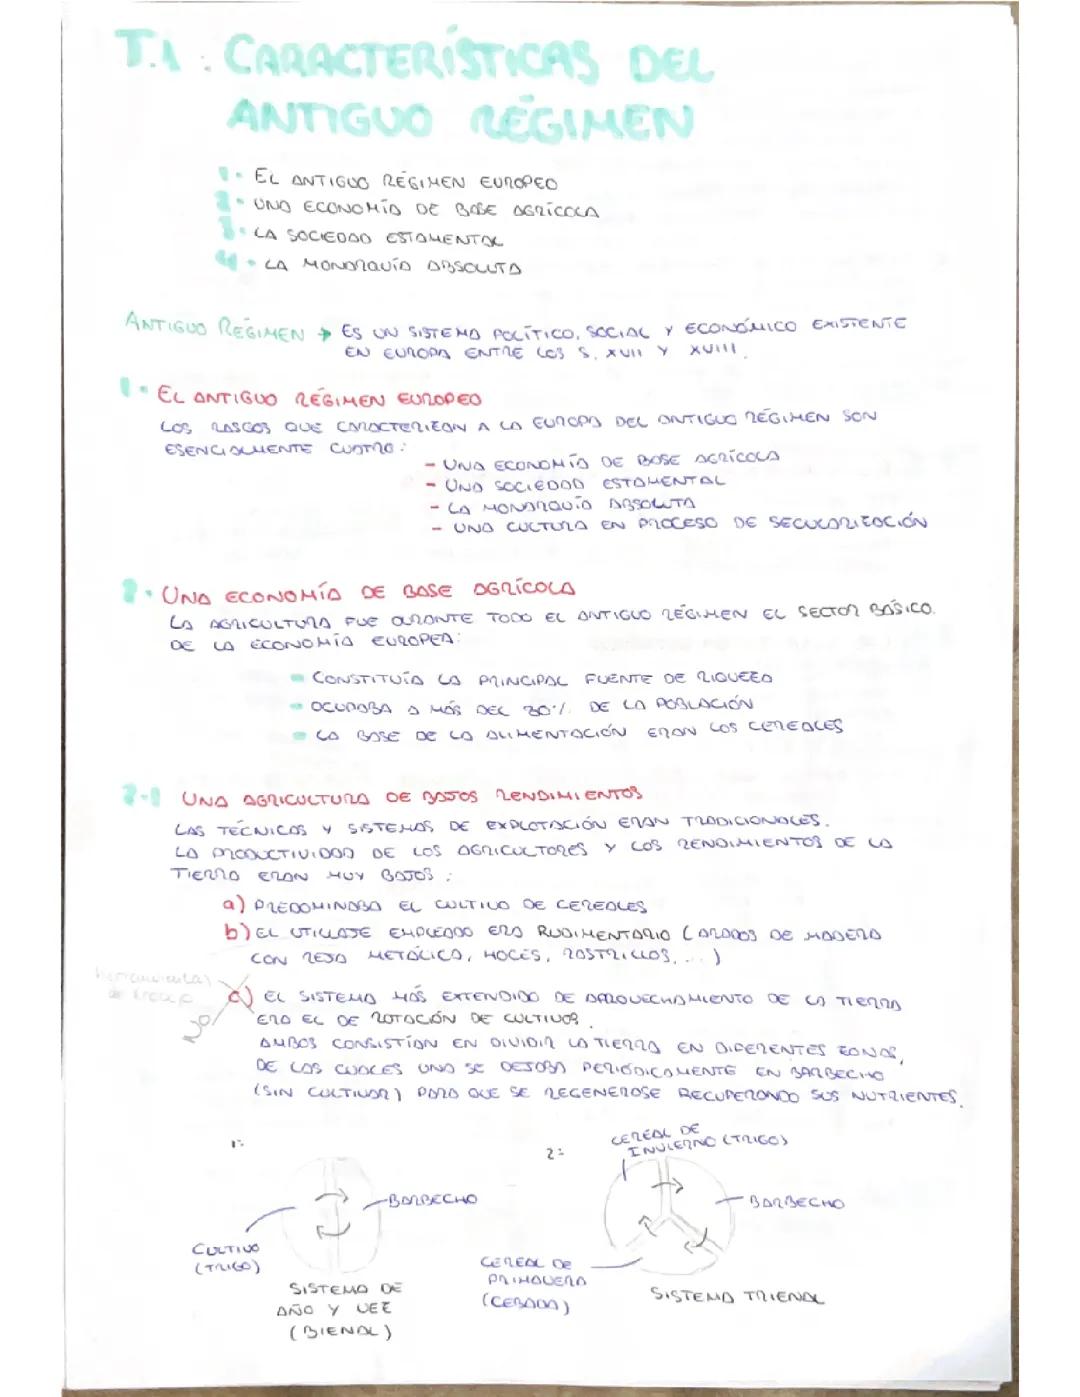 T.1: CARACTERÍSTICAS DEL
ANTIGUO RÉGIMEN
1- EL ANTIGUO RÉGIMEN EUROPEO
2- UNA ECONOMÍA DE BASE AGRÍCOLA
3- LA SOCIEDAD ESTAMENTAL
4- LA MONARQUÍA ABSOLUTA
ANTIGUO RÉGIMEN → ES UN SISTEMA POLÍTICO, SOCIAL Y ECONÓMICO EXISTENTE
EN EUROPA ENTRE LOS S. XVII Y XVIII.
1- EL ANTIGUO RÉGIMEN EUROPEO
LOS RASGOS QUE CARACTERIZAN A LA EUROPA DEL ANTIGUO RÉGIMEN SON
ESENCIALMENTE CUATRO:
- UNA ECONOMÍA DE BASE AGRÍCOLA
- UNA SOCIEDAD ESTAMENTAL
- LA MONARQUÍA ABSOLUTA
- UNA CULTURA EN PROCESO DE SECULARIZACIÓN
2- UNA ECONOMÍA DE BASE AGRÍCOLA
LA AGRICULTURA FUE DURANTE TODO EL ANTIGUO RÉGIMEN EL SECTOR BÁSICO
DE LA ECONOMÍA EUROPEA:
- CONSTITUÍA LA PRINCIPAL FUENTE DE RIQUEZA
- OCUPABA A MÁS DEL 80% DE LA POBLACIÓN
- LA BASE DE LA ALIMENTACIÓN ERAN LOS CEREALES
2-1 UNA AGRICULTURA DE BAJOS RENDIMIENTOS
LAS TÉCNICAS Y SISTEMAS DE EXPLOTACIÓN ERAN TRADICIONALES.
LA PRODUCTIVIDAD DE LOS AGRICULTORES Y LOS RENDIMIENTOS DE LA
TIERRA ERAN MUY BAJOS:
a) PREDOMINABA EL CULTIVO DE CEREALES
b) EL UTILLAJE EMPLEADO ERA RUDIMENTARIO (ARADOS DE MADERA
CON REJA METÁLICA, HOCES, RASTRILLOS, ...)
herramientas
c) EL SISTEMA MÁS EXTENDIDO DE APROVECHAMIENTO DE LA TIERRA
ERA EL DE ROTACIÓN DE CULTIVOS.
AMBOS CONSISTÍAN EN DIVIDIR LA TIERRA EN DIFERENTES ZONAS,
DE LAS CUALES UNA SE DEJABA PERIÓDICAMENTE EN BARBECHO
(SIN CULTIVAR) PARA QUE SE REGENERASE RECUPERANDO SUS NUTRIENTES.
1:
BARBECHO
CULTIVO
(TRIGO)
SISTEMA DE
AÑO Y VEZ
(BIENAL)
2:
CEREAL DE
INVIERNO (TRIGO)
BARBECHO
CEREAL DE
PRIMAVERA
(CEBADA)
SISTEMA TRIENAL